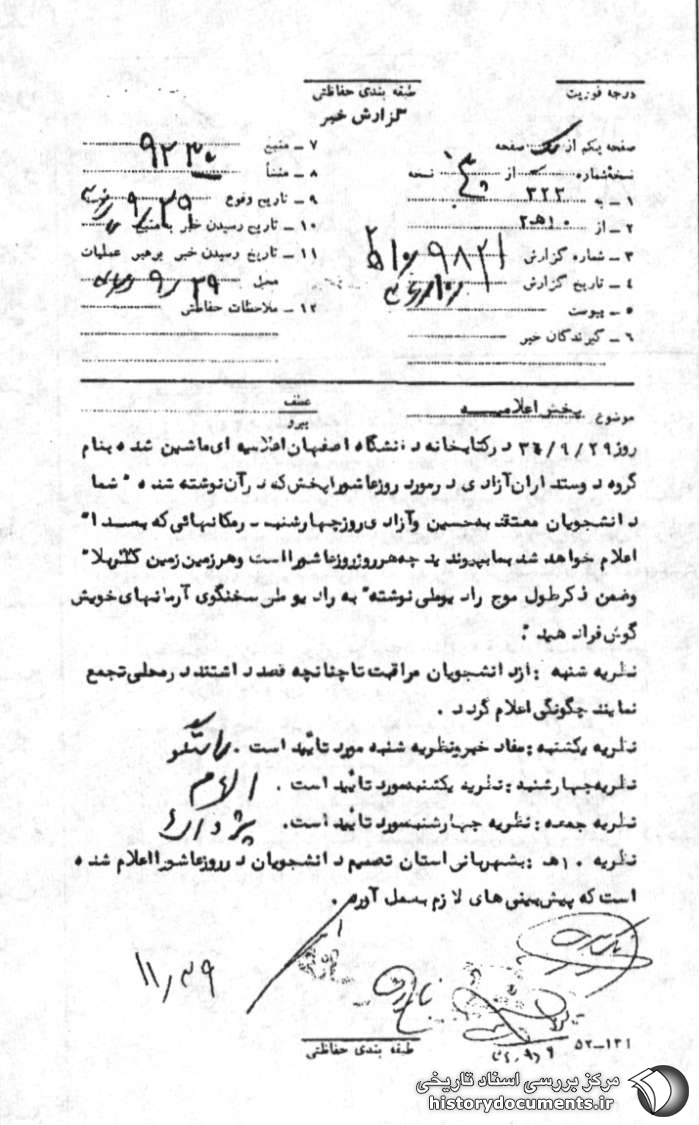 درجه فوریت
طبقه بندی حفاظتی
گزارش خبر
صفحه یکم از یک صفحه
نسخهٔ شماره از نسخه
۱ ـ به ۳۲۲
۲ ـ از ۱۰هـ۲
۳ ـ شماره گزارش
۴ ـ تاریخ گزارش
۵ ـ پیوست
۶ ـ گیرندگان خبر
۷ ـ منبع ۹۲۳۰
۸ ـ منشأ
۹ ـ تاریخ وقوع ۲۹/۹/
۱۰ ـ تاریخ رسیدن خبر به منبع
۱۱ ـ تاریخ رسیدن خبر برهبر عملیات
محل ۲۹/۹/
۱۲ ـ ملاحظات حفاظتی
موضوع پخش اعلامیــه
عطف
پیرو
روز ۳۶/۹/۲۹ در کتابخانه دانشگاه اصفهان اعلامیه ای ماشین شده بنام
گروه دوستداران آزادی در مورد روز عاشورا پخش که در آن نوشته شده " شما
دانشجویان معتقد به حسین و آزادی روز چهارشنبه در مکانهائی که بعدا"
اعلام خواهد شد بما بپیوندید چه هر روز روز عاشورا است و هر زمین زمین کربلا"
وضمن ذکر طول موج رادیوئی نوشته" به رادیوطی سخنگوی آرمانهای خویش
گوش فرا دهید".
نظریه شنبه : از دانشجویان مراقبت تا چنانچه قصد داشتند در محلی تجمع
نمایند چگونگی اعلام گردد .
نظریه یکشنبه : مفاد خبر و نظریه شنبه مورد تأیید است . راستگو
نظریه چهارشنبه : نظریه یکشنبه مورد تأیید است .
نظریه جمعه : نظریه چهارشنبه مورد تایید است.
نظریه ۱۰هـ : بشهربانی استان تصمیم دانشجویان در روز عاشورا اعلام شده
است که پیش بینی های لازم بعمل آورد .
۱۱/۲۹
۵۲-۱۳۱
طبقه بندی حفاظتی
مرکز بررسی اسناد تاریخی
historydocuments.ir